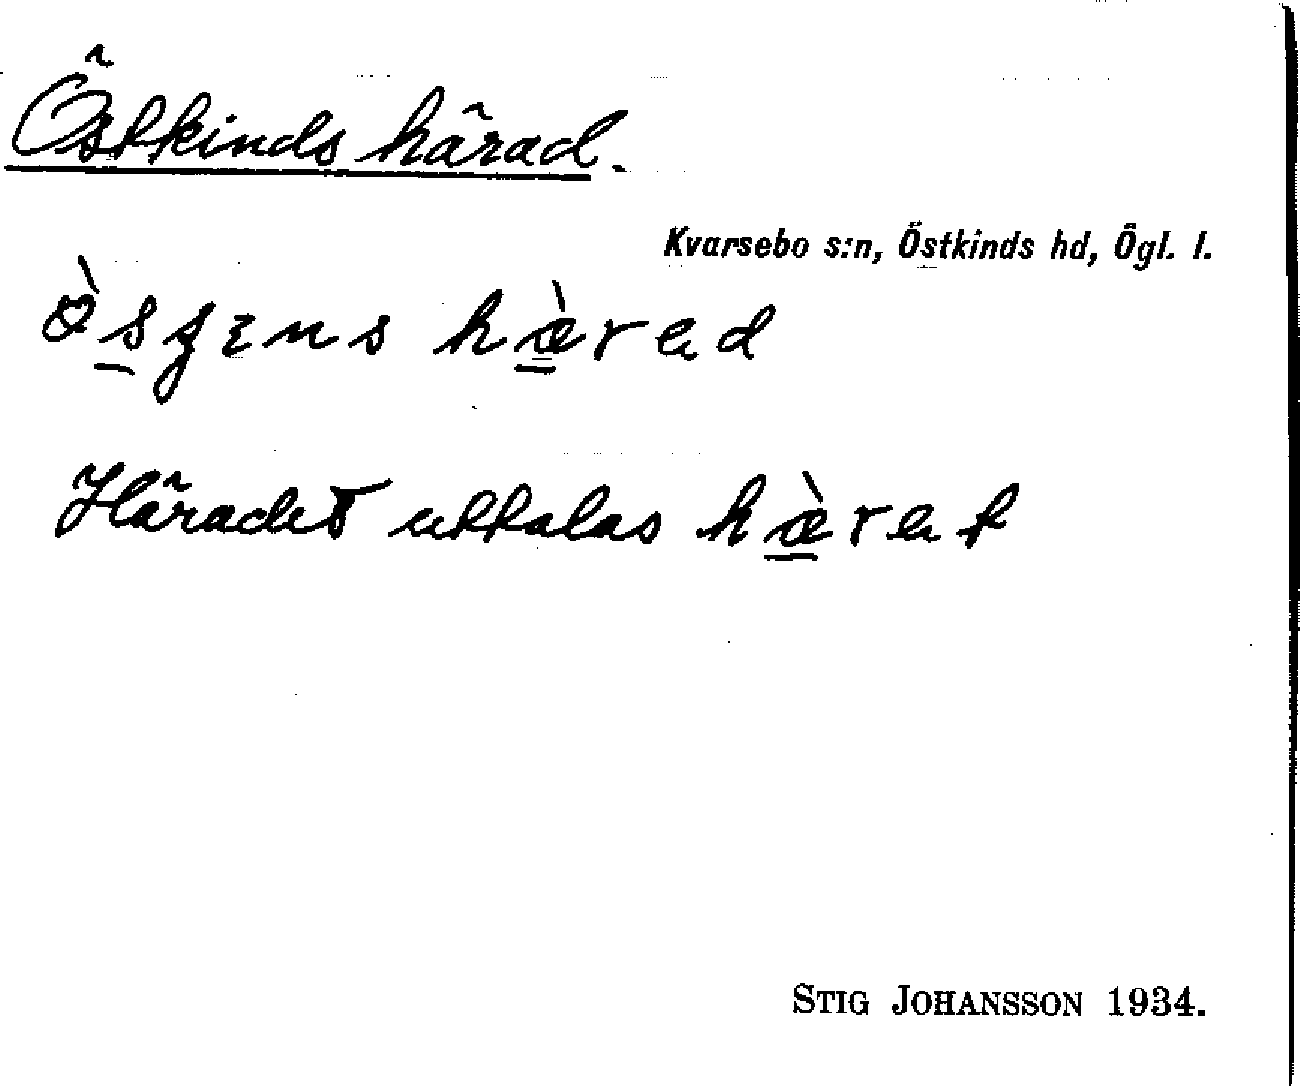 Östkinds härad.
Kvarsebo s:n, Östkinds hd, Ögl. l.
hæ̀rad
Häradet uttalas hæ̀rat
STIG JOHANSSON 1934.